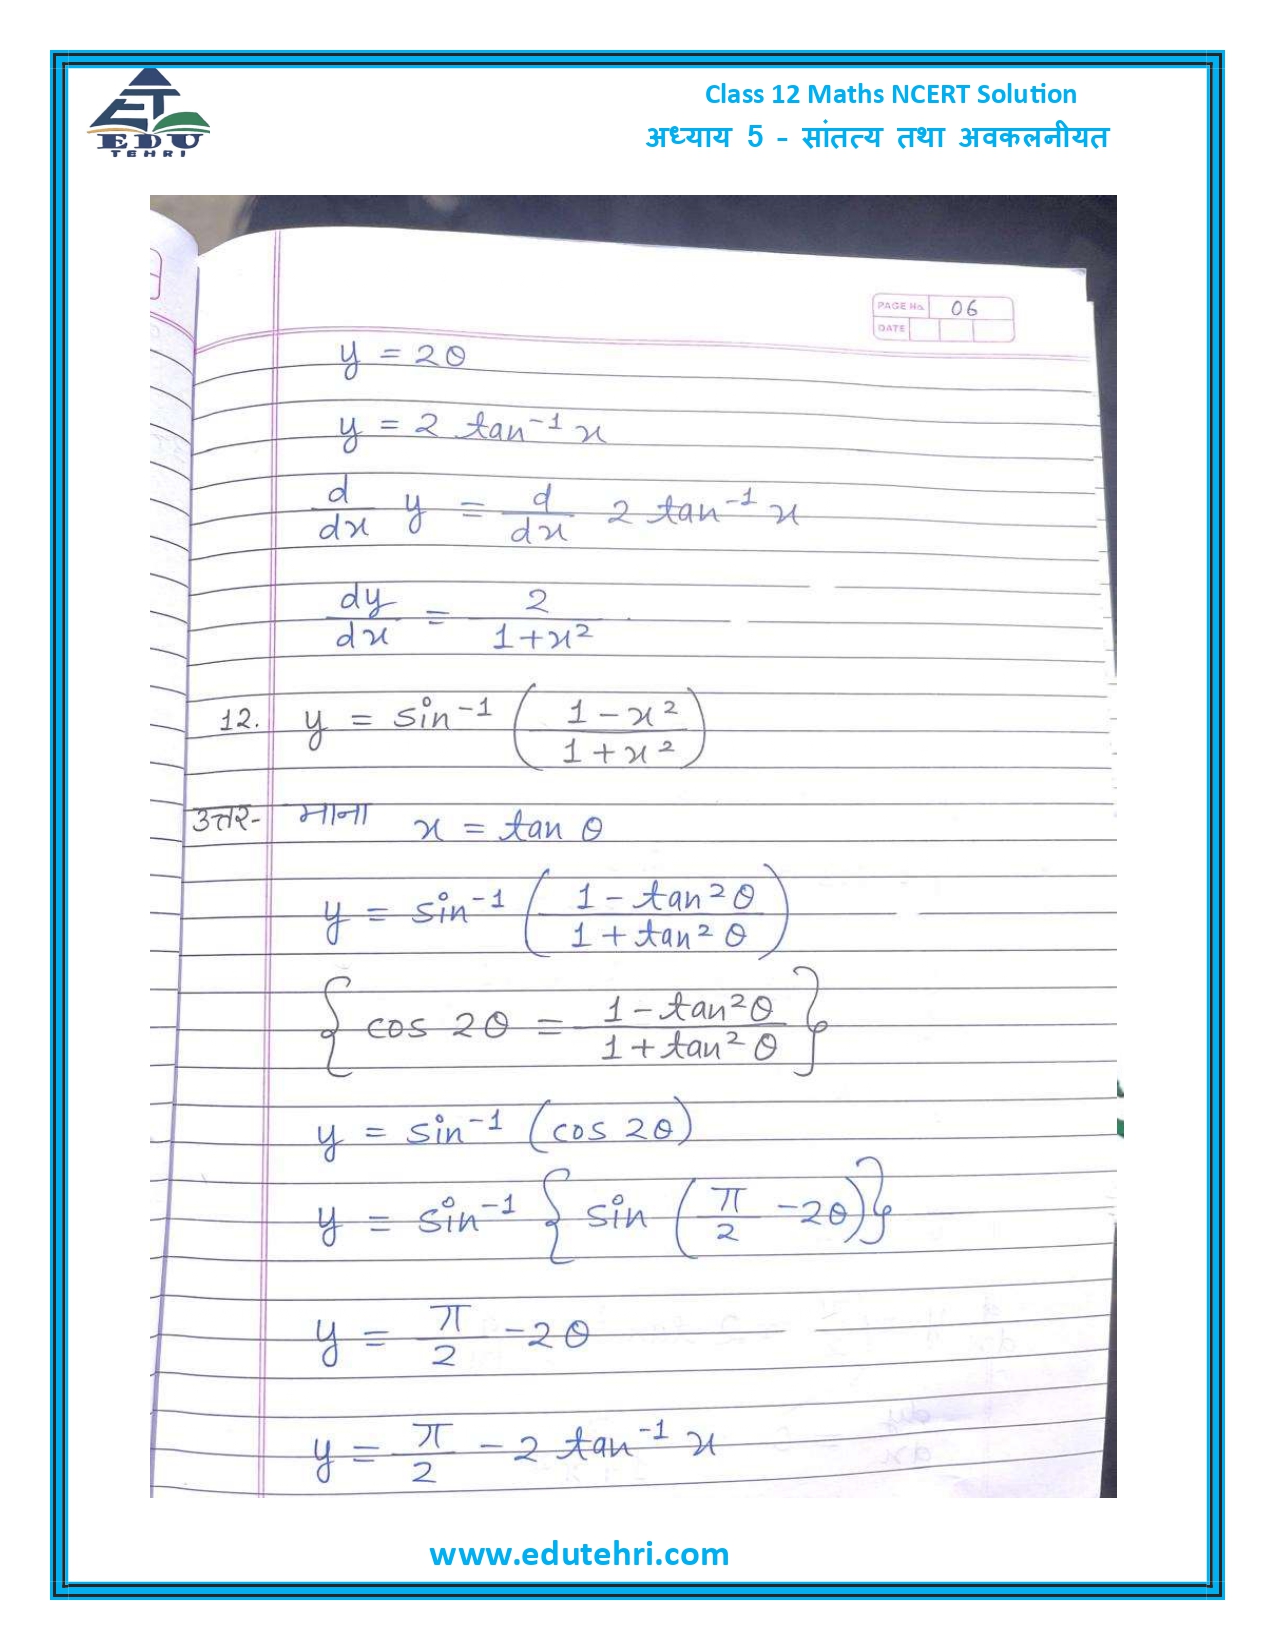 Class 12 Maths NCERT Solution
अध्याय 5 - सांतत्य तथा अवकलनीयत
EDU
TEHRI
PAGE No. 06
DATE
y = 2θ
y = 2 tan⁻¹ x
d/dx y = d/dx 2 tan⁻¹ x
dy/dx = 2/(1+x²)
12. y = sin⁻¹ ((1-x²)/(1+x²))
उत्तर- माना x = tan θ
y = sin⁻¹ ((1 - tan²θ)/(1 + tan²θ))
{cos 2θ = (1 - tan²θ)/(1 + tan²θ)}
y = sin⁻¹ (cos 2θ)
y = sin⁻¹ {sin (π/2 - 2θ)}
y = π/2 - 2θ
y = π/2 - 2 tan⁻¹ x
www.edutehri.com